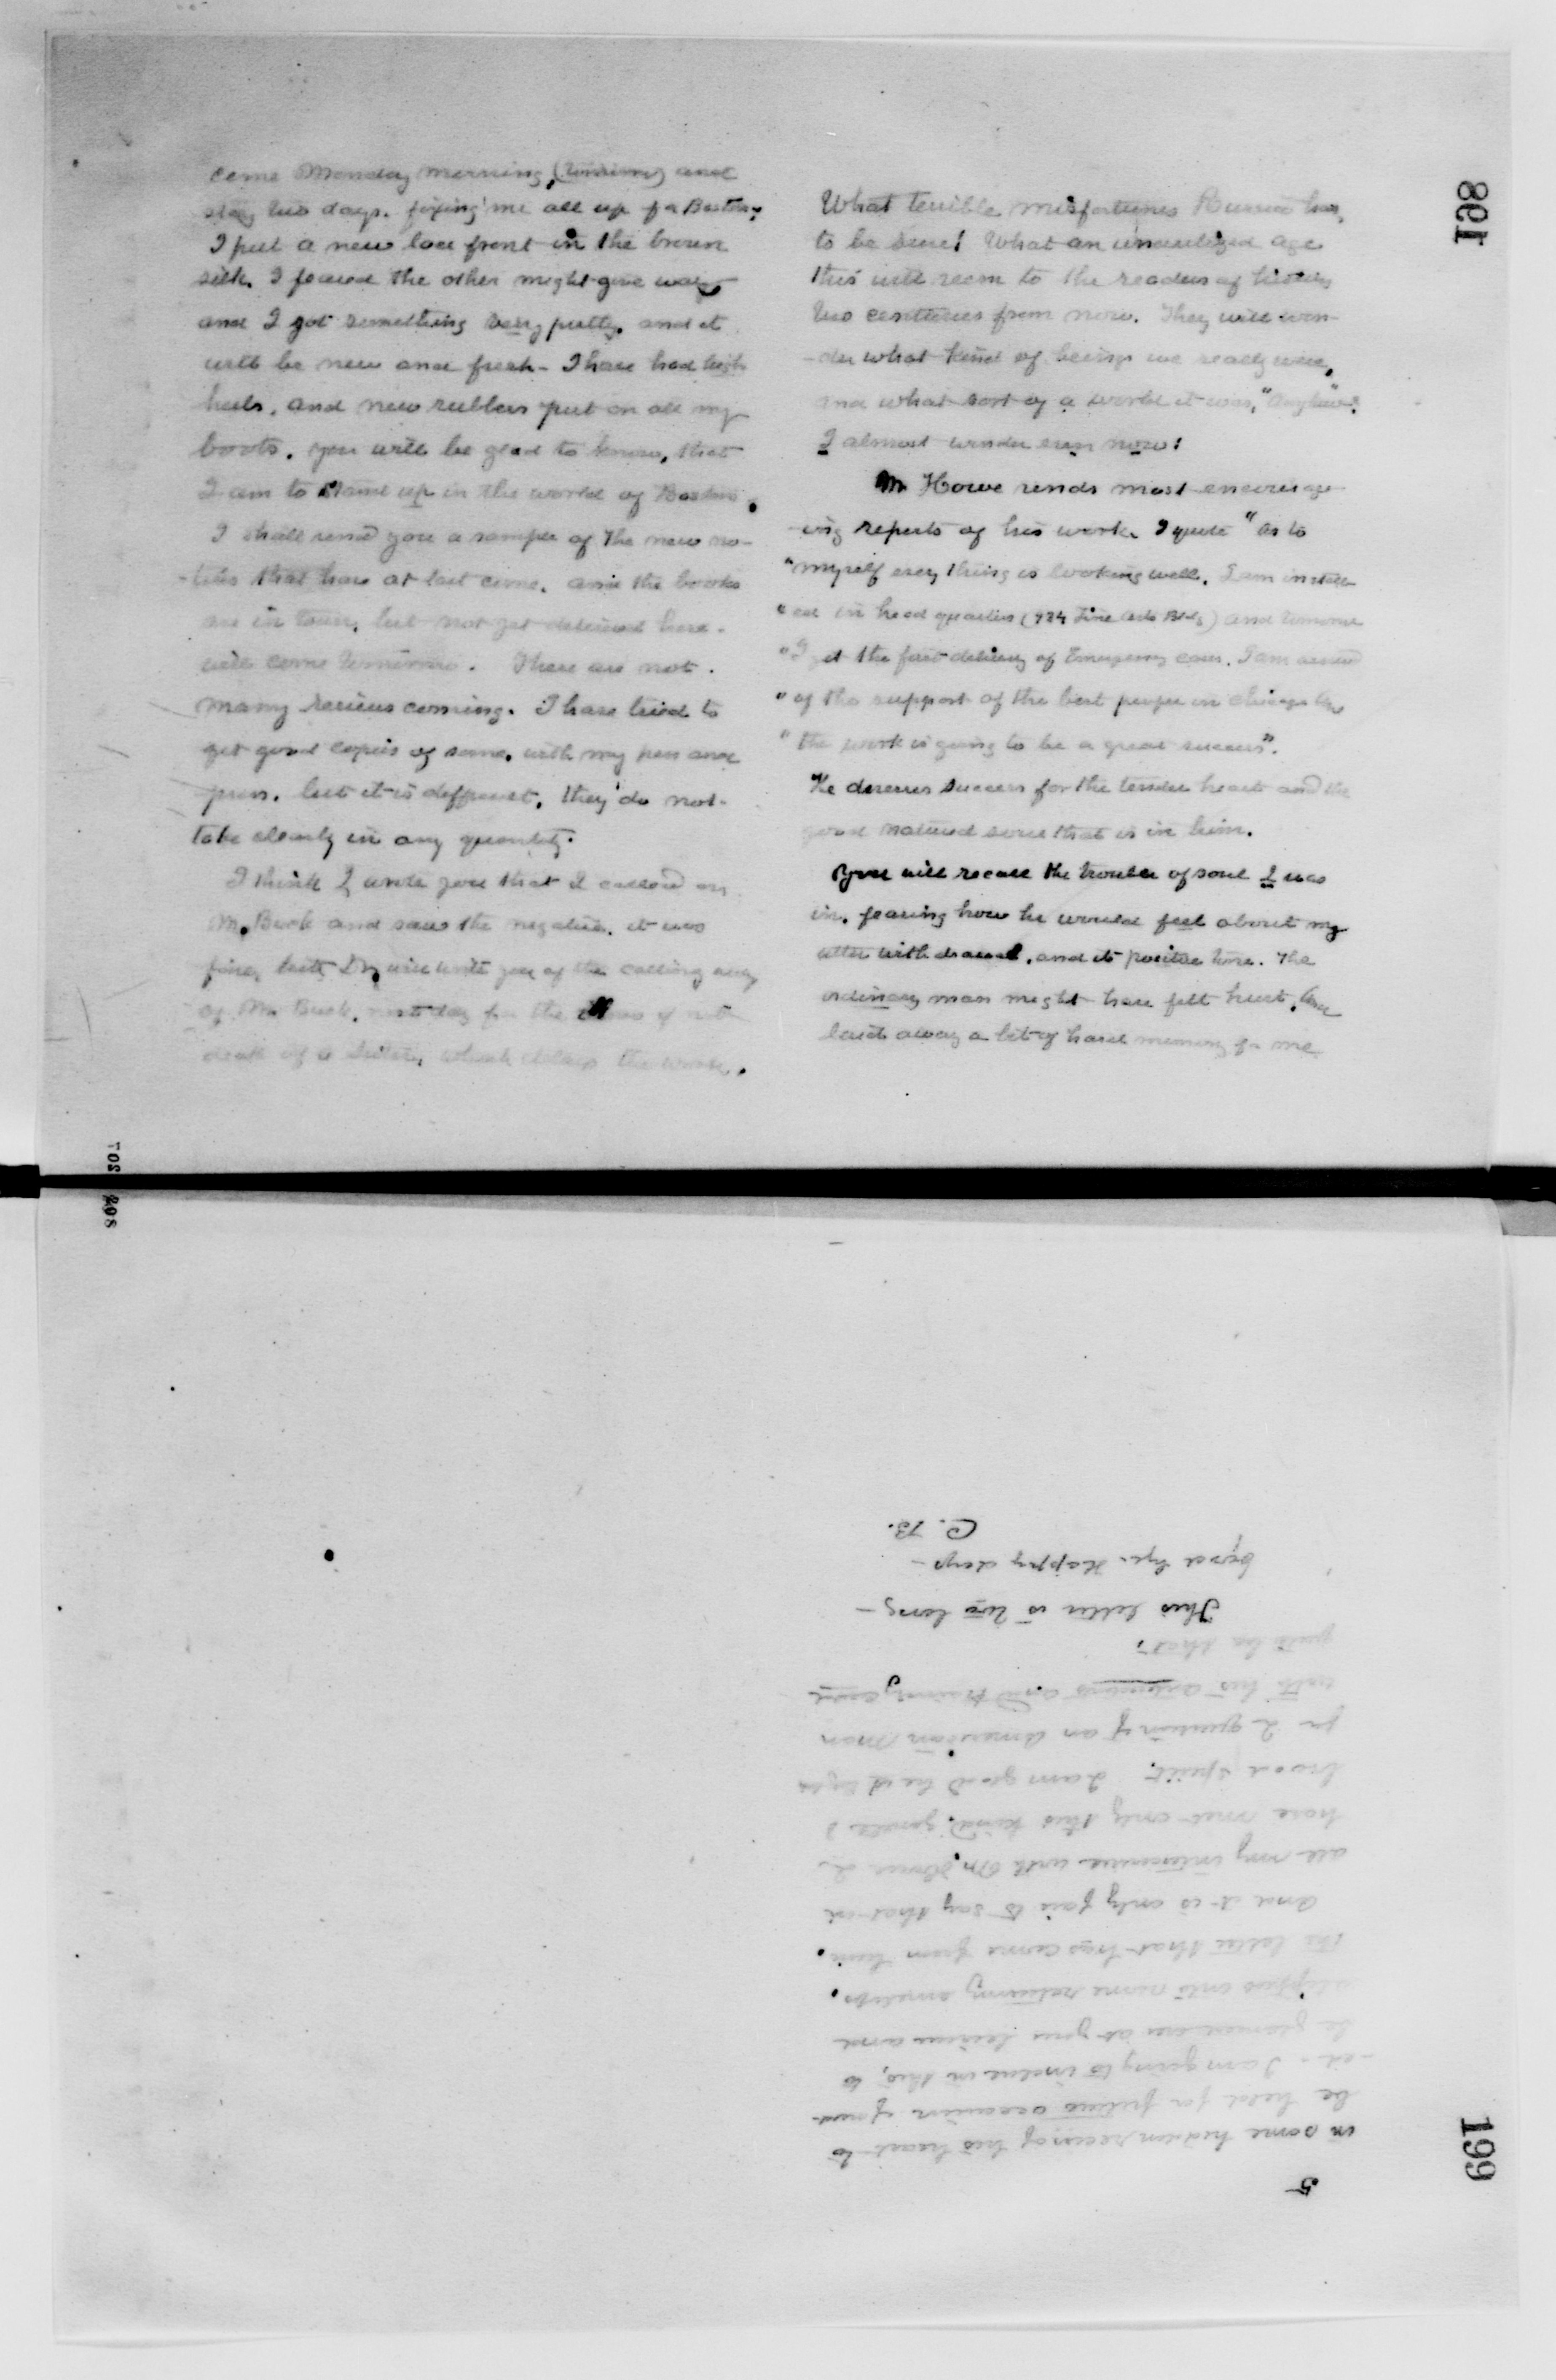 198
come Monday morning, (tomorrow) and
stay two days. fixing me all up for Boston,
I put a new lace front in the brown
silk. I feared the other might give way
and I got something very pretty. and it
will be new and fresh - I have had high
heels, and new rubbers put on all my
boots. you will be glad to know, that
I am to stand up in the world of Boston.
I shall send you a sample of the new no-
-tices that have at last come. and the books
are in town, but not yet delivered here.
will come tomorrow. There are not
many reviews coming. I have tried to
get good copies of some, with my pen and
press. but it is different, they do not
take clearly in any quantity.
I think I wrote you that I called on
Mr. Buck and saw the negative. it was
fine, but Dr. will write you of the calling away
of Mr Buck. next day for the illness of
death of a sister, which delays the work.
What terrible misfortunes Russia has,
to be sure! What an uncivilized age
this will seem to the readers of history
two centuries from now. They will won-
-der what kind of beings we really were,
and what sort of a world it was, "anyhow".
I almost wonder even now!
Mr Howe sends most encourage-
-ing reports of his work. I quote "as to
"myself every thing is working well. I am install-
"ed in head quarters (924 Fine Arts Bldg) and tomorrow
"I get the first delivery of Emergency cases. I am assured
"of the support of the best people in Chicago
"the work is going to be a great success".
He deserves success for the tender heart and the
good natured soul that is in him.
You will recall the trouble of soul I was
in, fearing how he would feel about my
utter withdrawal, and its positive tone. The
ordinary man might have felt hurt, and
laid away a bit of hard memory of me
199
5
in some hidden recess of his heart to
be held for future occasion if need-
-ed - I am going to inclose in this, to
be glanced over at your leisure and
slipped into some returning envelope.
the letter that has come from him.
And it is only fair to say that in
all my intercourse with Mr. Howe I
have met only this kind, gentle &
broad spirit. I am glad he is
for I question if an American man
with his and
quite be that.
This letter is too long -
Good bye. Happy days -
C. B.